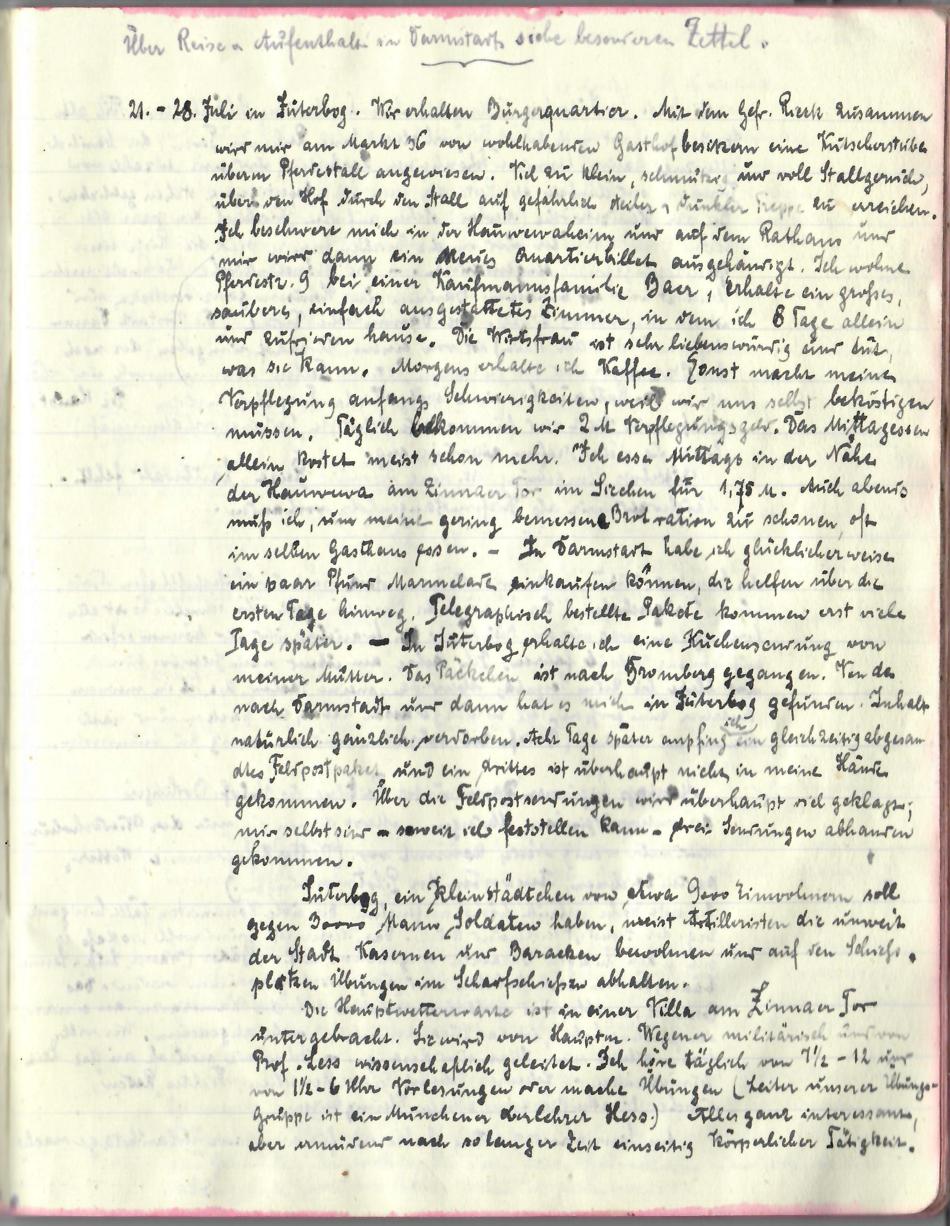 Über Reise u Aufenthalt in Darmstadt siehe besonderen Zettel.
21. - 28. Juli in Jüterbog. Wir erhalten Bürgerquartier. Mit dem Gefr. Rieck zusammen
wird mir am Markt 36 von wohlhabenden Gasthofbesitzern eine Kutscherstube
überm Pferdestall angewiesen. Viel zu klein, schmutzig und voll Stallgeruch,
über den Hof durch den Stall auf gefährlich steiler, dunkler Treppe zu erreichen.
Ich beschwere mich in der Hauwewa heim und auf dem Rathaus und
mir wird dann ein neues Quartierbillet ausgehändigt. Ich wohne
Pferdestr. 9 bei einer Kaufmannsfamilie Baer, erhalte ein großes,
sauberes, einfach ausgestattetes Zimmer, in dem ich 8 Tage allein
und zufrieden hause. Die Wirtsfrau ist sehr liebenswürdig und tut,
was sie kann. Morgens erhalte ich Kaffee. Sonst macht meine
Verpflegung anfangs Schwierigkeiten, weil wir uns selbst beköstigen
müssen. Täglich bekommen wir 2 M Verpflegungsgeld. Das Mittagessen
allein kostet meist schon mehr. Ich esse Mittags in der Nähe
der Hauwewa am Zinnaer Tor im für 1,75 M. Auch abends
muß ich, um meine gering bemessene Brotration zu schonen, oft
im selben Gasthaus essen. - In Darmstadt habe ich glücklicherweise
ein paar Pfund Marmelade einkaufen können, die helfen über die
ersten Tage hinweg. Telegraphisch bestellte Pakete kommen erst viele
Tage später. - In Jüterbog erhalte ich eine Kuchensendung von
meiner Mutter. Das Päckchen ist nach Bromberg gegangen. Von da
nach Darmstadt und dann hat es mich in Jüterbog gefunden. Inhalt
natürlich gänzlich verdorben. Acht Tage später empfing ich ein gleichzeitig abgesan
dtes Feldpostpaket und ein drittes ist überhaupt nicht in meine Hände
gekommen. Über die Feldpostsendungen wird überhaupt viel geklagt;
mir selbst sind - soweit ich feststellen kann - drei Sendungen abhanden
gekommen.
Jüterbog, ein Kleinstädtchen von etwa 9000 Einwohnern soll
gegen 30000 Mann Soldaten haben, meist Artilleristen die unweit
der Stadt Kasernen und Baracken bewohnen und auf den Schieß.
plätzen Übungen im Scharfschießen abhalten.
Die Hauptwetterwarte ist in einer Villa am Zinnaer Tor
untergebracht. Sie wird von Hauptm. Wegener militärisch und von
Prof. Less wissenschaftlich geleitet. Ich höre täglich von 7½ - 12 und
von 1½ - 6 Uhr Vorlesungen oder mache Übungen (Leiter unserer Übungs-
gruppe ist ein Münchener Oberlehrer Hess.) Alles ganz interessant,
aber ermüdend nach so langer Zeit einseitig körperlicher Tätigkeit.